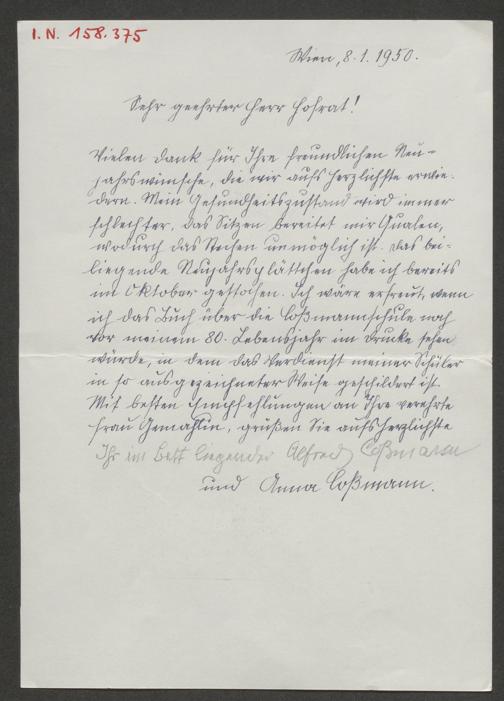 I.N. 158.375
Wien, 8.1.1950.
Sehr geehrter Herr Hofrat!
Vielen Dank für Ihre freundlichen Neu-
jahrswünsche, die wir aufs herzlichste erwie-
dern. Mein Gesundheitszustand wird immer
schlechter, das Sitzen bereitet mir Qualen,
wodurch das Stechen unmöglich ist. Das bei-
liegende Neujahrsplättchen habe ich bereits
im Oktober gestochen. Ich wäre erfreut, wenn
ich das Buch über die Coßmannschule noch
vor meinem 80. Lebensjahr im Drucke sehen
würde, in dem das Verdienst meiner Schüler
in so ausgezeichneter Weise geschildert ist.
Mit besten Empfehlungen an Ihre verehrte
Frau Gemahlin, grüßen Sie aufs herzlichste
Ihr im Bett liegender Alfred Coßmann
und Anna Coßmann.